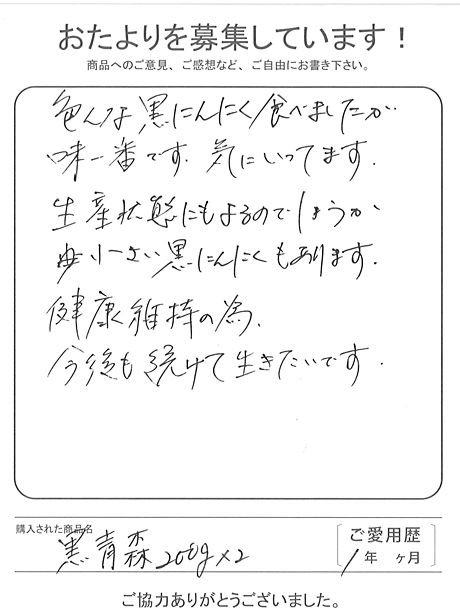 おたよりを募集しています！
商品へのご意見、ご感想など、ご自由にお書き下さい。
色んな黒にんにく食べましたが
味一番です。気にいってます。
生産状態にもよるのでしょうか
小さい黒にんにくもあります。
健康維持の為、
今後も続けて生きたいです。
購入された商品名
黒青森200g×2
ご愛用歴
1年 ヶ月
ご協力ありがとうございました。